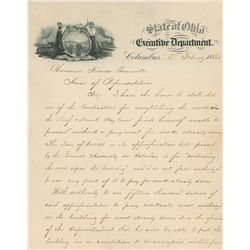 State of Ohio
Executive Department.
Columbus, February 1868
Chairman Finance Committee
House of Representatives
Sir, I have the honor to state that
one of the Contractors for completing the work on the
Deaf & Asylum finds himself unable to
proceed without payment for work already done.
The item of in the appropriation bill passed
by the General Assembly on Saturday is for "continuing
the work upon the building" and I do not feel authorized
to use any part of it to pay for work already done.
With authority to use fifteen thousand dollars of
said appropriation to pay contracts
on the building for work already done, it is the opinion
of the Superintendent that he will be able to put the
building in a condition to be occupied